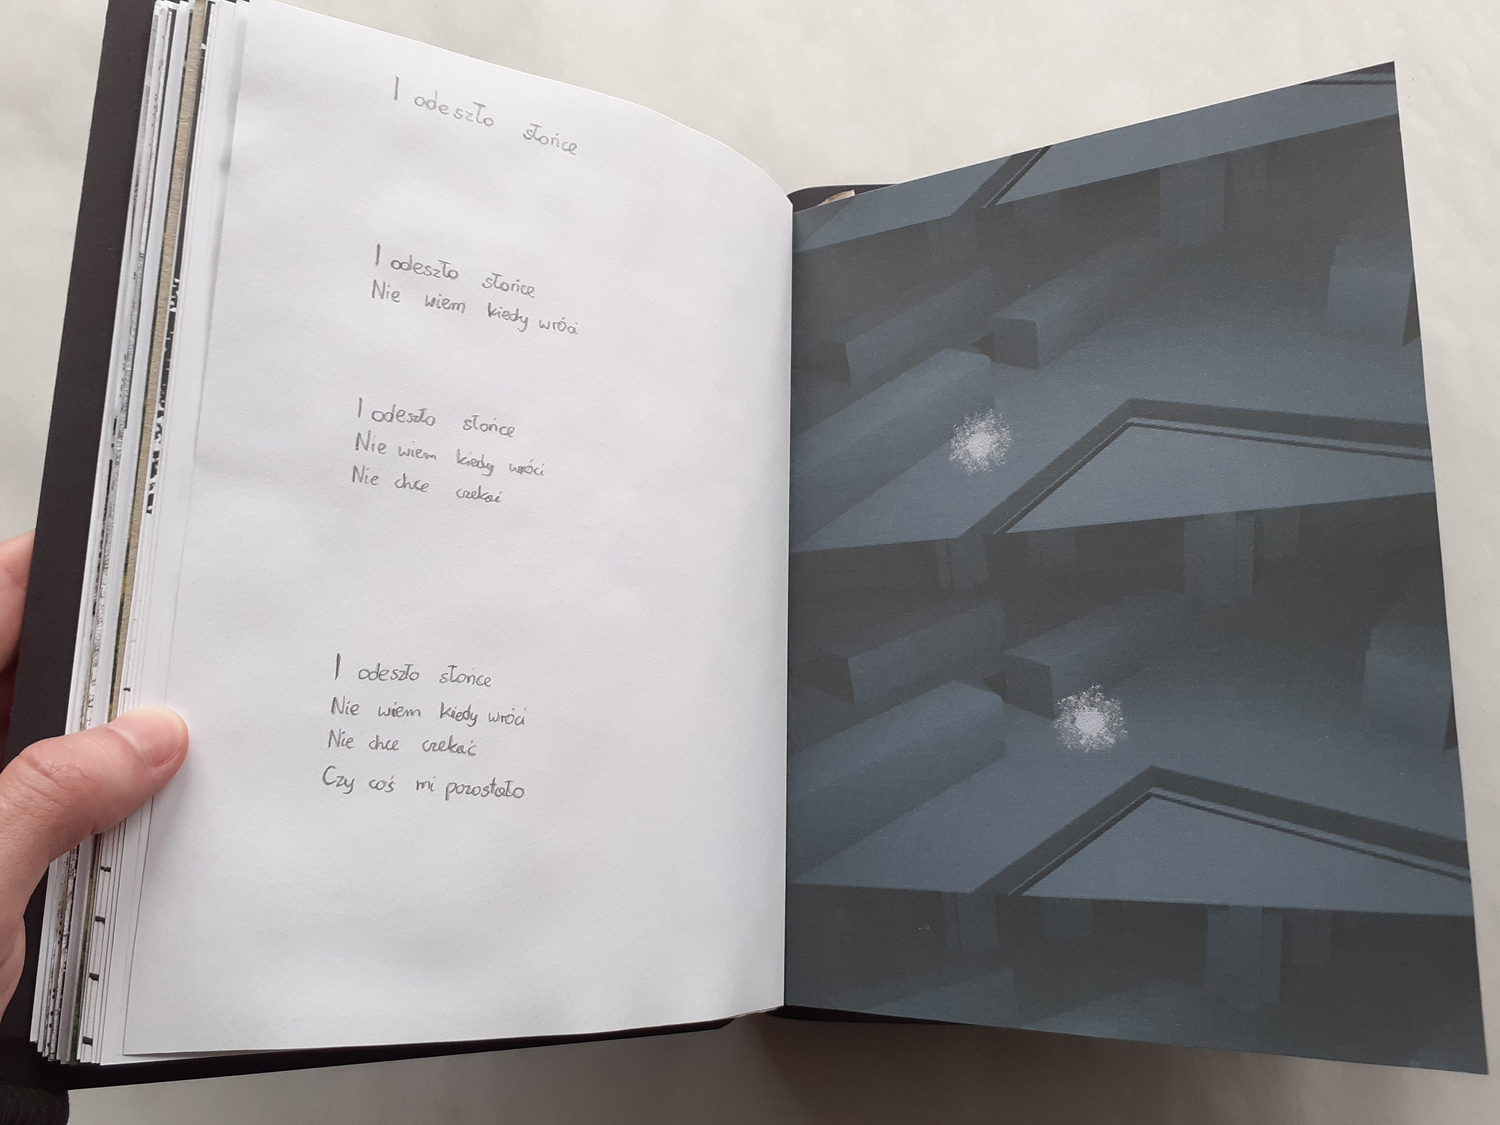 I odeszło słońce
I odeszło słońce
Nie wiem kiedy wróci
I odeszło słońce
Nie wiem kiedy wróci
Nie chce czekać
I odeszło słońce
Nie wiem kiedy wróci
Nie chce czekać
Czy coś mi pozostało